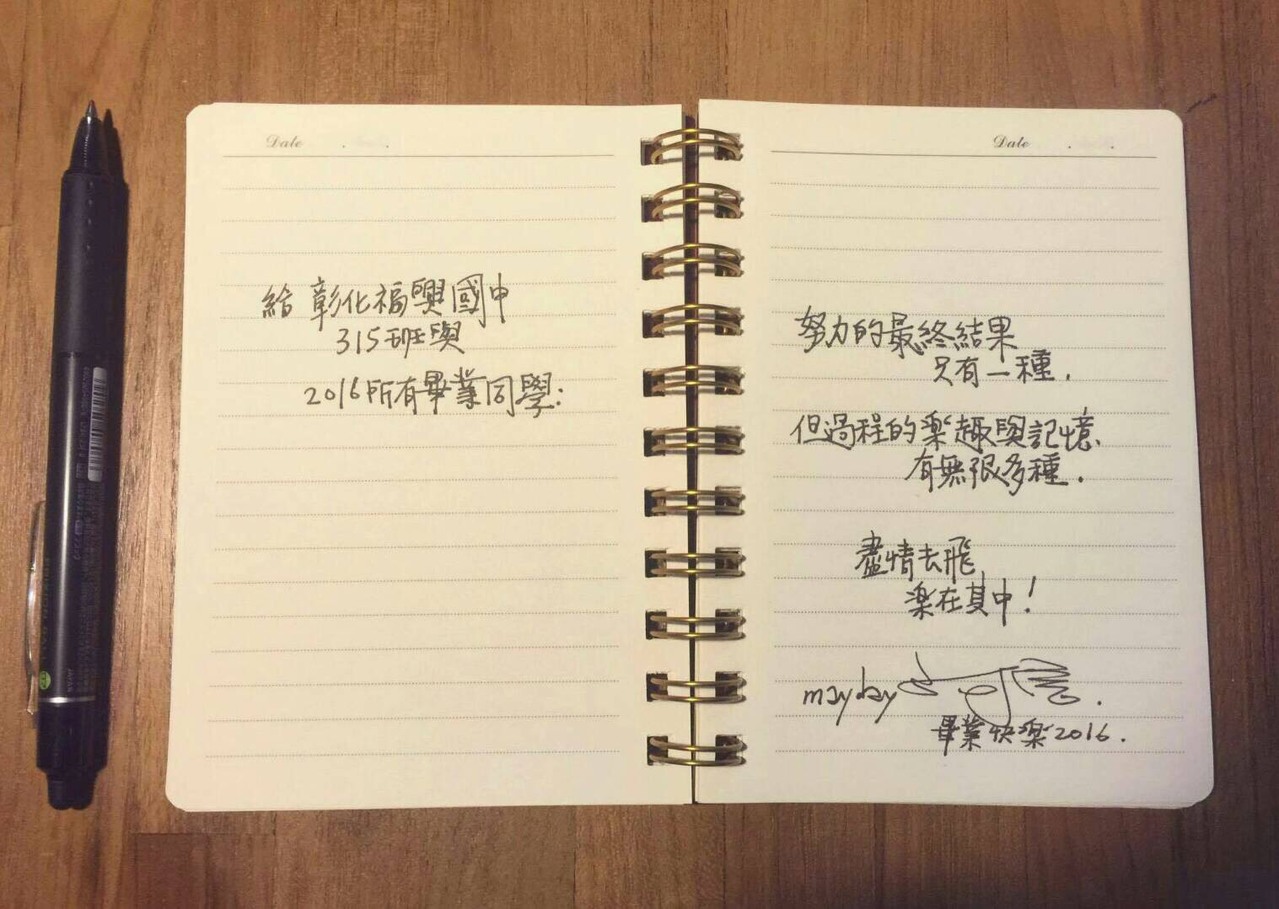 Date
給 彰化福興國中
315班與
2016所有畢業同學:
Date
努力的最終結果
只有一種.
但過程的楽趣與記憶
有無限多種.
盡情去飛
楽在其中!
mayday
畢業快楽2016.